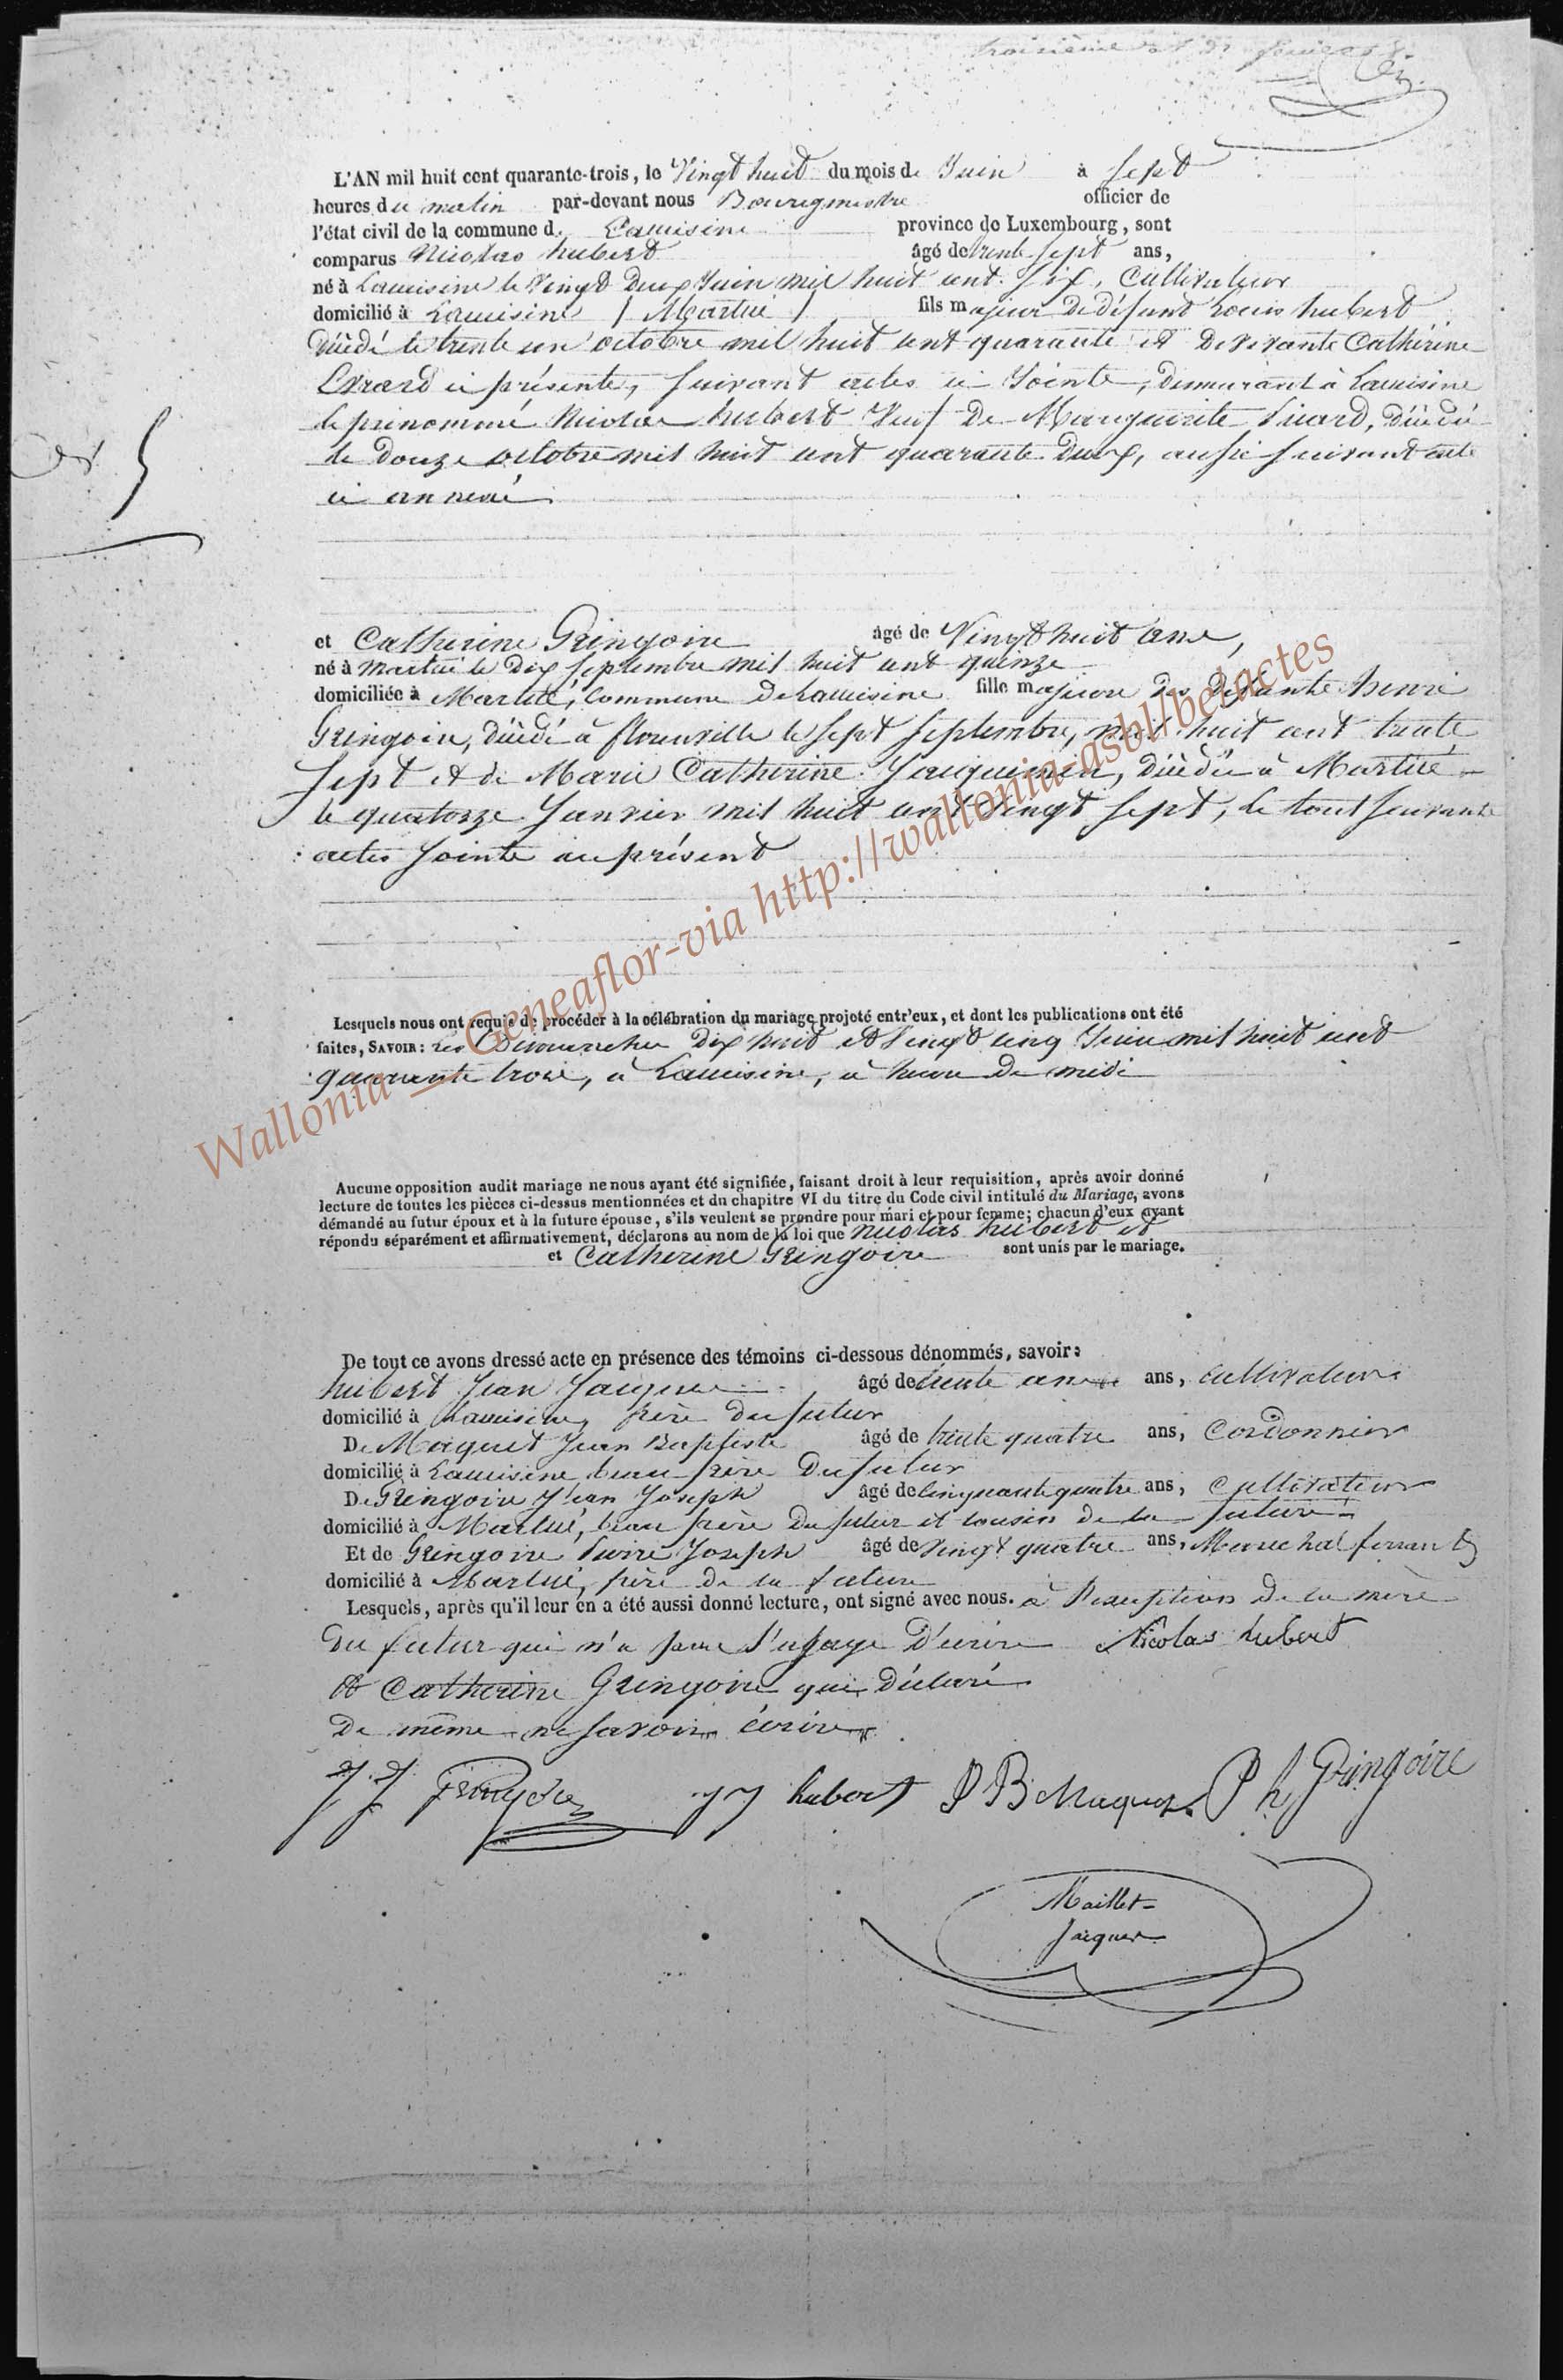 troisième
N° 5
L'AN mil huit cent quarante-trois, le Vingt huit du mois de Juin à Sept
heures du matin par-devant nous Bourgmestre officier de
l'état civil de la commune de Lacuisine province de Luxembourg, sont
comparus Nicolas hubert âgé de trente sept ans,
né à Lacuisine le Vingt Deux Juin mil huit cent Six, Cultivateur
domicilié à Lacuisine / Martué / fils majeur De défunt Louis hubert
décédé le trente un octobre mil huit cent quarante et De vivante Catherine
Evrard ci présente, suivant actes ci Jointe, demeurant à Lacuisine
le prénommé Nicolas hubert Veuf De Marguerite , décédée
le Douze octobre mil huit cent quarante Deux, aussi suivant acte
ci annexé
et Catherine Gringoire âgé de Vingt huit ans,
né à Martué le Dix Septembre mil huit cent quinze
domiciliée à Martué, Commune De Lacuisine fille majeure Des henri
Gringoire, décédé à florenville le Sept Septembre, mil huit cent trente
Sept et de Marie Catherine Jacquemin, décédée à Martué
le quatorze Janvier mil huit cent Vingt Sept, le tout suivant
actes Jointe au présent
Lesquels nous ont requis de procéder à la célébration du mariage projeté entr'eux, et dont les publications ont été
faites, SAVOIR: les Dimanches Dix huit et Vingt cinq Juin mil huit cent
quarante trois, à Lacuisine, à heure De midi
Aucune opposition audit mariage ne nous ayant été signifiée, faisant droit à leur requisition, après avoir donné
lecture de toutes les pièces ci-dessus mentionnées et du chapitre VI du titre du Code civil intitulé du Mariage, avons
démandé au futur époux et à la future épouse, s'ils veulent se prendre pour mari et pour femme; chacun d'eux ayant
répondu séparément et affirmativement, déclarons au nom de la loi que Nicolas hubert et
et Catherine Gringoire sont unis par le mariage.
De tout ce avons dressé acte en présence des témoins ci-dessous dénommés, savoir:
hubert Jean Jacques âgé de trente ans, cultivateur
domicilié à Lacuisine, frère du futur
De Maquet Jean Baptiste âgé de trente quatre ans, Cordonnier
domicilié à Lacuisine beau frère Du futur
De Gringoire Jean Joseph âgé de Cinquante quatre ans, Cultivateur
domicilié à Martué, beau frère Du futur et cousin de la future
Et de Gringoire Pierre Joseph âgé de Vingt quatre ans, Marechal ferrant
domicilié à Martué, frère De la future
Lesquels, après qu'il leur en a été aussi donné lecture, ont signé avec nous. à l'exception De la mère
Du futur qui n'a pas l'usage D'écrire Nicolas hubert
et Catherine Gringoire qui Déclaré
De même ne savoir écrire
J J Gringoire JJ hubert J B Maquet P h Gringoire
Maillet-
Jacques
Wallonia - Geneaflor-via http://wallonia-asbl/belactes